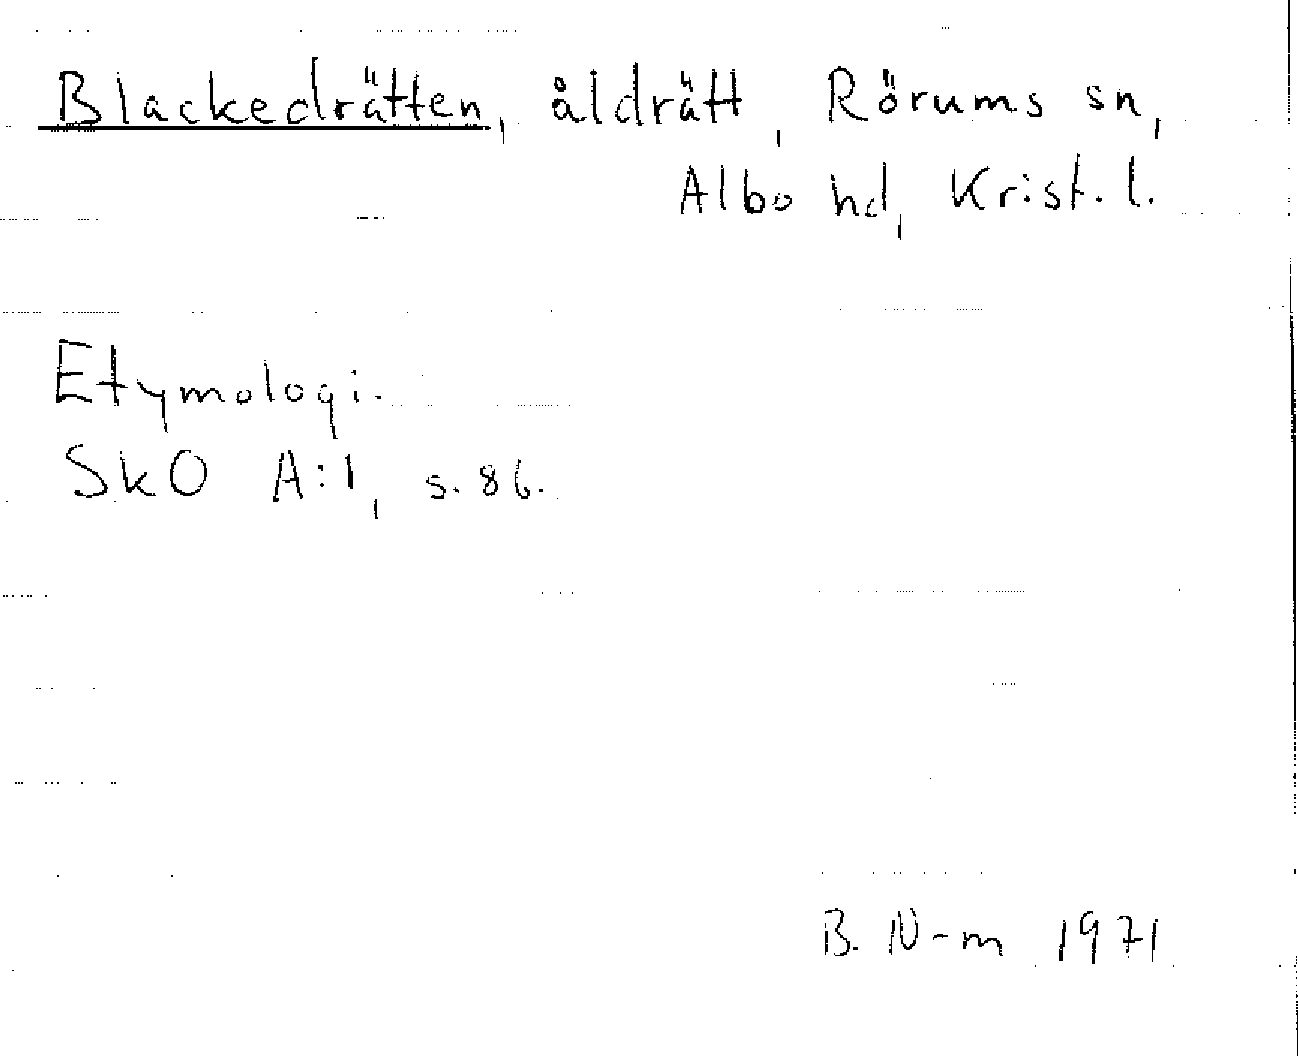 Blackedrätten, åldrätt, Rörums sn,
Albo hd, Krist. l.
Etymologi.
SkO A:1, s. 86.
B. N-m 1971